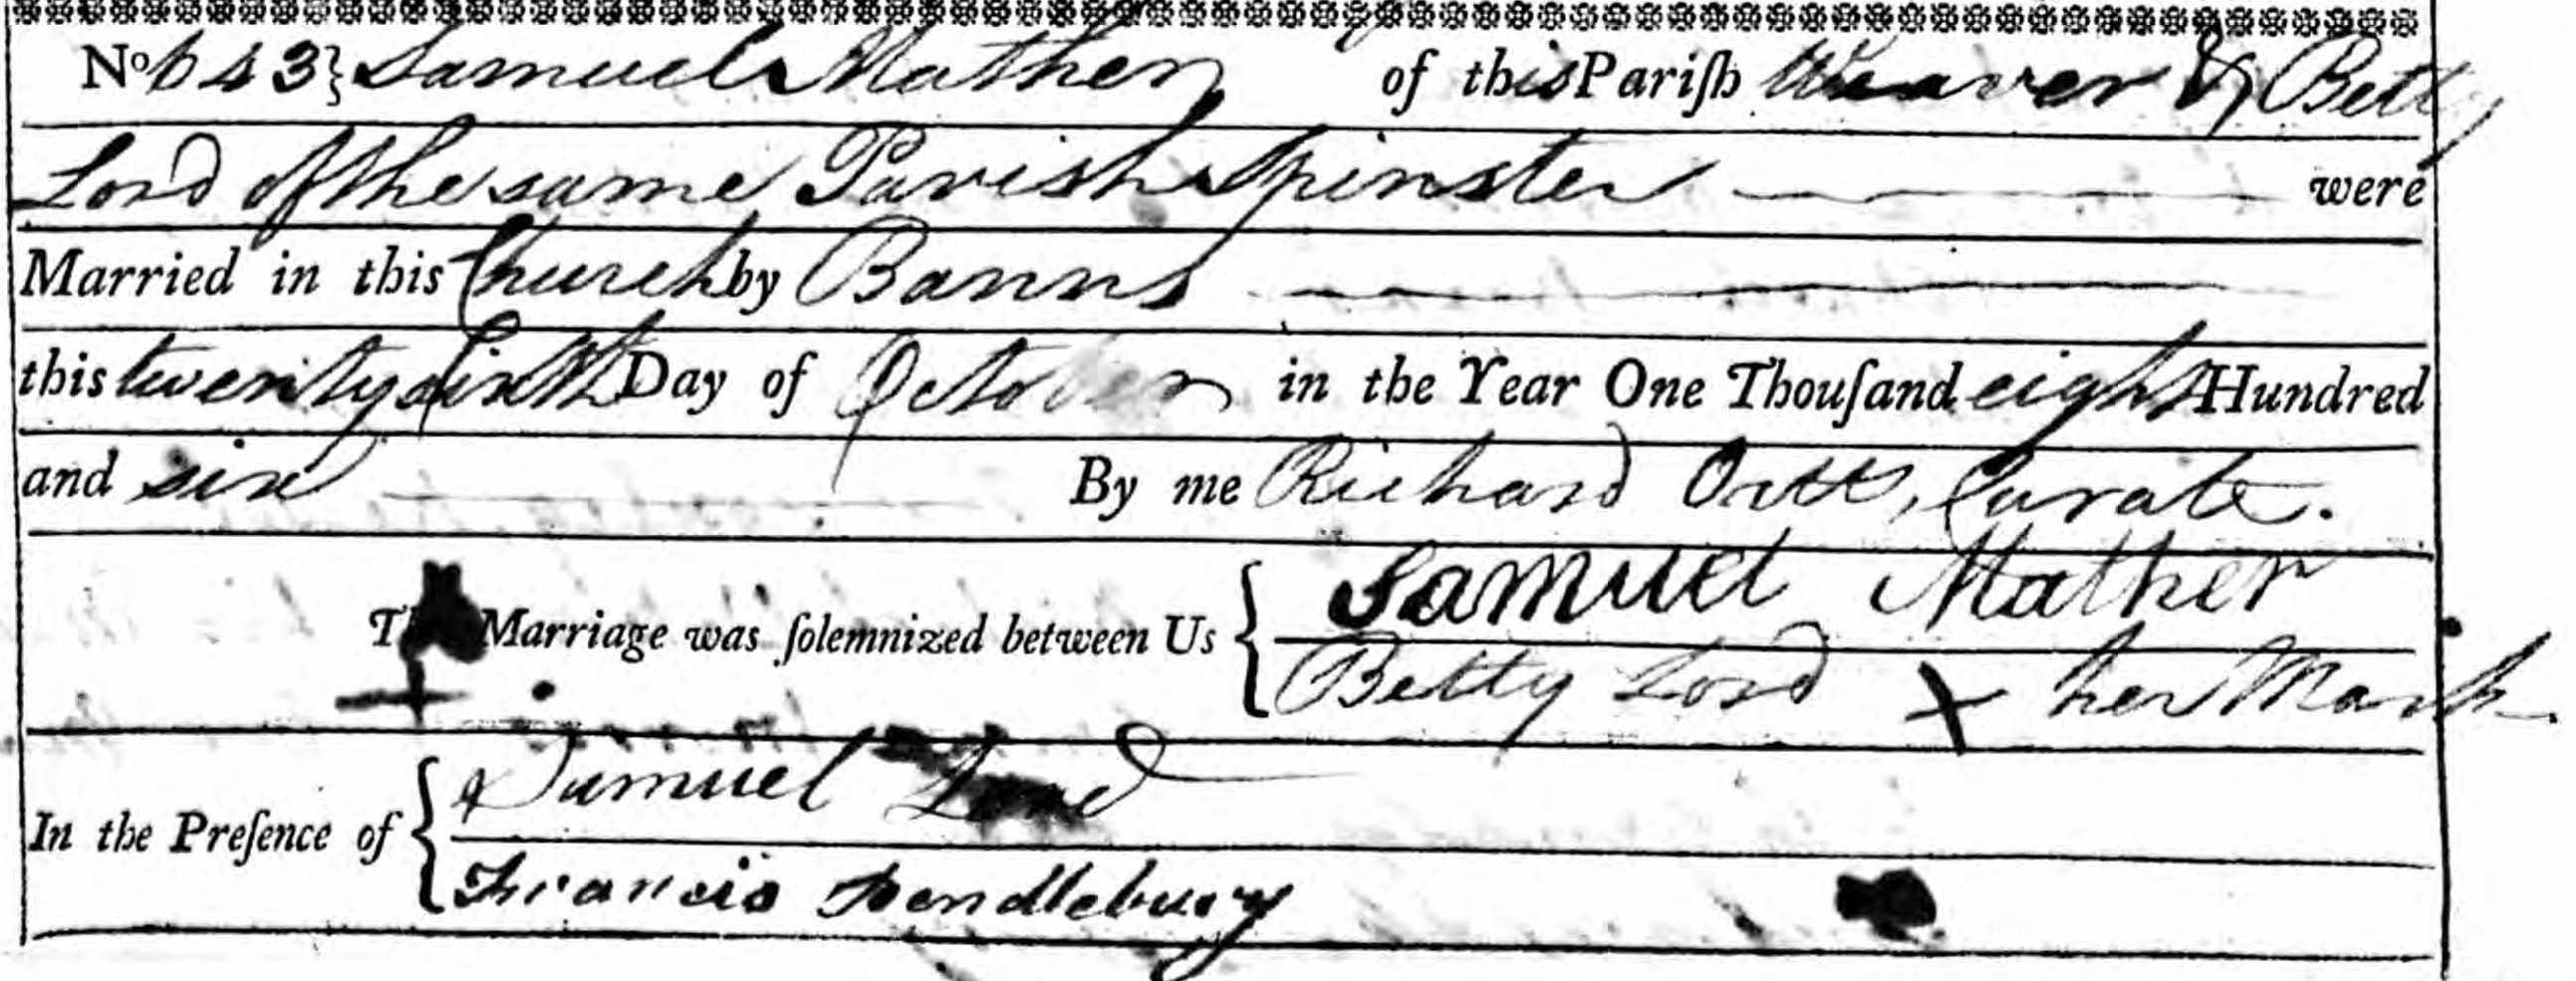 No 643} Samuel Mather of this Pariſh Weaver & Betty
Lord of the same Parish Spinster were
Married in this Church by Banns
this twenty sixth Day of October in the Year One Thouſand eight Hundred
and six By me Richard Curate.
Marriage was ſolemnized between Us { Samuel Mather
Betty Lord X her Mark
In the Preſence of { Samuel Lord
Francis Pendlebury